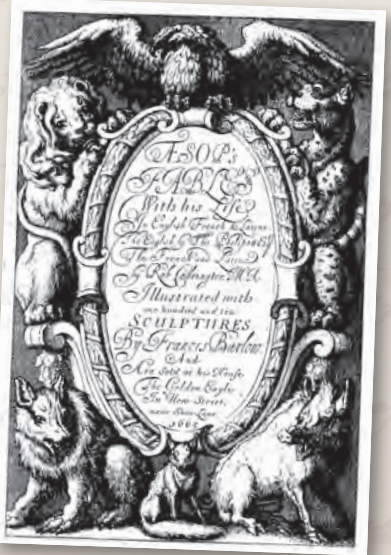 ÆSOP's
FABLES
With his Life
In English French & Latine
The English by Tho. Philipott Esq.
The French and Latine
By Rob. Codrington M.A.
Illustrated with
one hundred and ten
SCULPTURES
By Francis Barlow.
And
Are Sold at his House
The Golden Eagle
In New-Street,
near Shoo-Lane
1665